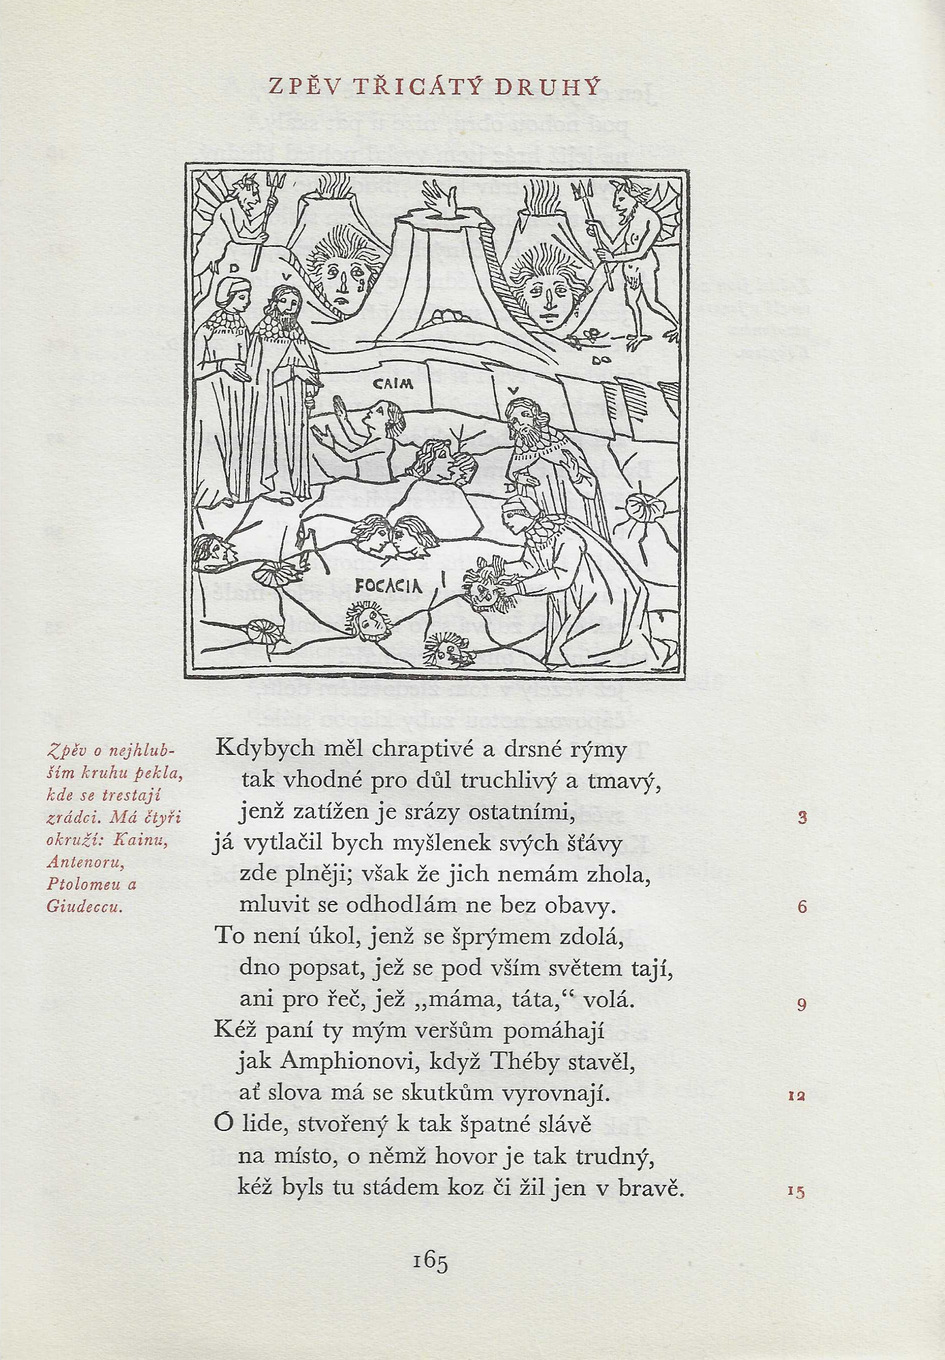 ZPĚV TŘICÁTÝ DRUHÝ
D
V
CAIM
V
D
FOCACIA
Zpěv o nejhlub-
ším kruhu pekla,
kde se trestají
zrádci. Má čtyři
okruží: Kainu,
Antenoru,
Ptolomeu a
Giudeccu.
Kdybych měl chraptivé a drsné rýmy
tak vhodné pro důl truchlivý a tmavý,
jenž zatížen je srázy ostatními, 3
já vytlačil bych myšlenek svých šťávy
zde plněji; však že jich nemám zhola,
mluvit se odhodlám ne bez obavy. 6
To není úkol, jenž se šprýmem zdolá,
dno popsat, jež se pod vším světem tají,
ani pro řeč, jež „máma, táta,“ volá. 9
Kéž paní ty mým veršům pomáhají
jak Amphionovi, když Théby stavěl,
ať slova má se skutkům vyrovnají. 12
Ó lide, stvořený k tak špatné slávě
na místo, o němž hovor je tak trudný,
kéž byls tu stádem koz či žil jen v bravě. 15
165